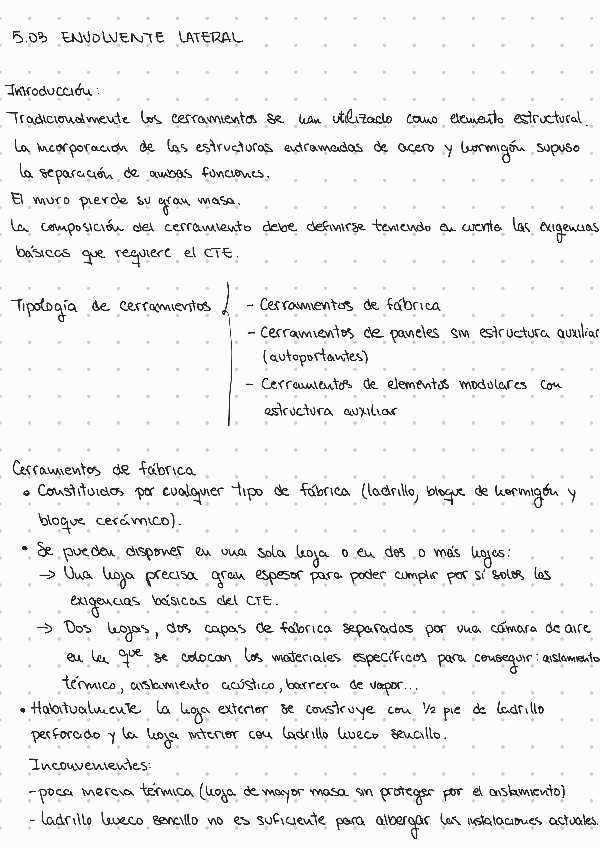 5.03 ENVOLVENTE LATERAL
Introducción:
Tradicionalmente los cerramientos se han utilizado como elemento estructural.
La incorporación de las estructuras entramadas de acero y hormigón supuso
la separación de ambas funciones.
El muro pierde su gran masa.
La composición del cerramiento debe definirse teniendo en cuenta las exigencias
básicas que requiere el CTE.
Tipología de cerramientos
- Cerramientos de fábrica
- Cerramientos de paneles sin estructura auxiliar
(autoportantes)
- Cerramientos de elementos modulares con
estructura auxiliar
Cerramientos de fábrica
• Constituidos por cualquier tipo de fábrica (ladrillo, bloque de hormigón y
bloque cerámico).
• Se pueden disponer en una sola hoja o en dos o más hojas:
→ Una hoja precisa gran espesor para poder cumplir por sí solos las
exigencias básicas del CTE.
→ Dos hojas, dos capas de fábrica separadas por una cámara de aire
en la que se colocan los materiales específicos para conseguir: aislamiento
térmico, aislamiento acústico, barrera de vapor...
• Habitualmente la hoja exterior se construye con 1/2 pie de ladrillo
perforado y la hoja interior con ladrillo hueco sencillo.
Inconvenientes:
- poca inercia térmica (hoja de mayor masa sin proteger por el aislamiento)
- ladrillo hueco sencillo no es suficiente para albergar las instalaciones actuales.